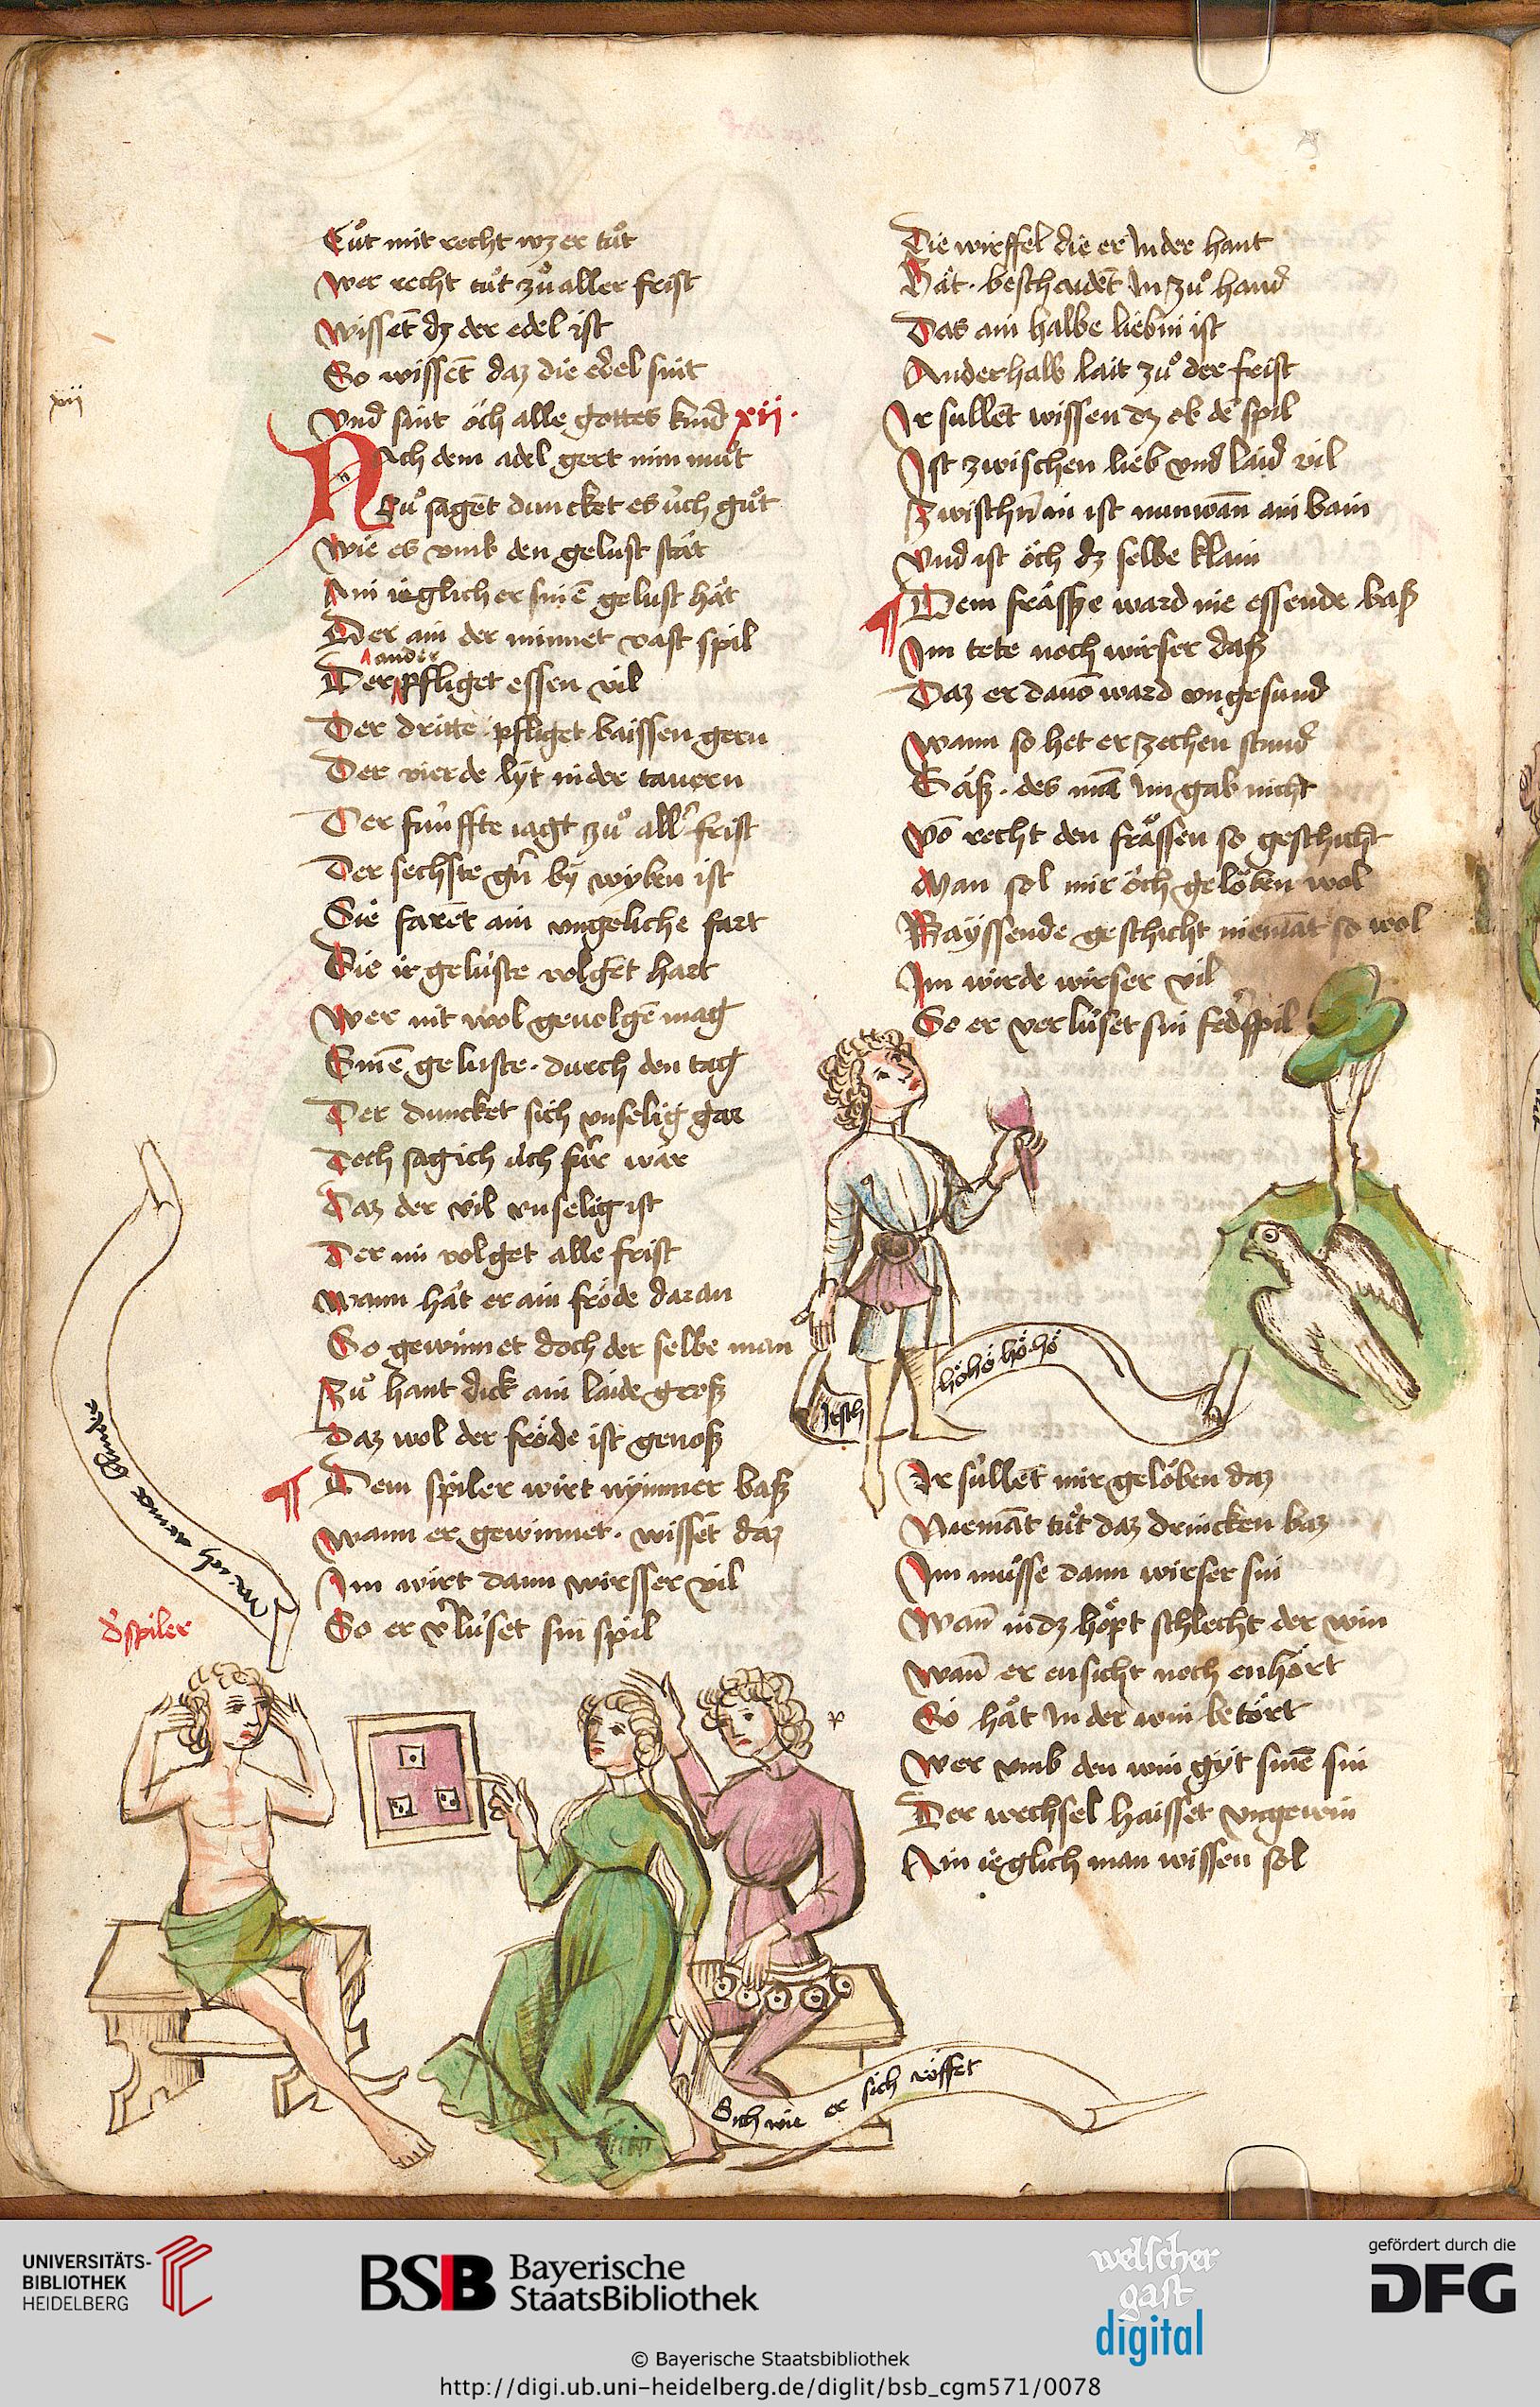 Tuͦt mit recht wz er tuͦt
Wer recht tuͦt zuͦ aller frist
Wissēt dz der edel ist
So wissēt daz die edel sint
Vnd sint öch alle gottes kind xii.
xii
Nach dem adel gert min muͦt
Zuͦ sagēt duncket es üch guͦt
Wie es vmb den gelust stät
Ain ieglicher sinē gelust hät
Der ain der minnet vast spil
ander
Der pfliget essen vil
Der dritte pfliget baissen gern
Der vierde lyt in der tauern
Der fünffte iagt zuͦ all' frist
Der sechste gn̄ by wyben ist
Sie farēt ain vngeliche fart
Die ir gelüste volgēt hart
Wer nit wol geuolgē mag
Sinē geluste. durch den tag
Der duncket sich vnselig gar
Doch sag ich üch für war
Daz der vil vnselig ist
Der im volget alle frist
Wann hät er ain fröde daran
So gewinnet doch der selbe man
Zuͦ hant dick ain laide groß
Daz wol der fröde ist genoß
¶ Dem spiler wirt nymmer baß
Wann er gewinnet. wissēt daz
Im wirt dann wirsser vil
So er v'lüset sin spil
d' spiler
Sich wie er sich röffet
Die wirffel die er in der hant
Hät. beschaidēt in zuͦ hand
Das ain halbe lieb in ist
Anderhalb lait zuͦ der frist
Ir sullēt wissen dz ob dē spil
Ist zwischen lieb vnd laid vil
Zwischn̄ in ist nunwan̄ ain bain
Vnd ist öch dz selbe klain
¶ Dem frässe ward nie essende baß
Im tete noch wirser daß
Daz er dauō ward vngesund
Wann so het er zechen stund
Gäß. des mā im gab nicht
Vō recht den frässen so geschicht
Man sol mir öch gelöben wol
Bayssende geschicht niemāt so wol
Im wirde wirser vil
So er verlüset sin fed'spil
hö hö hö hö
Ir süllēt mir gelöben daz
Niemāt tuͦt daz drincken baz
Im müsse dann wirser sin
Wan̄ in dz höpt schlecht der win
Wan̄ er ensicht noch enhört
So hät in der win betört
Wer vmb den win gyt sinē sin
Der wechsel haisset vngewin
Ain ieglich man wissen sol
UNIVERSITÄTS-
BIBLIOTHEK
HEIDELBERG
BSB Bayerische
StaatsBibliothek
welscher
gast
digital
gefördert durch die
DFG
© Bayerische Staatsbibliothek
http://digi.ub.uni-heidelberg.de/diglit/bsb_cgm571/0078